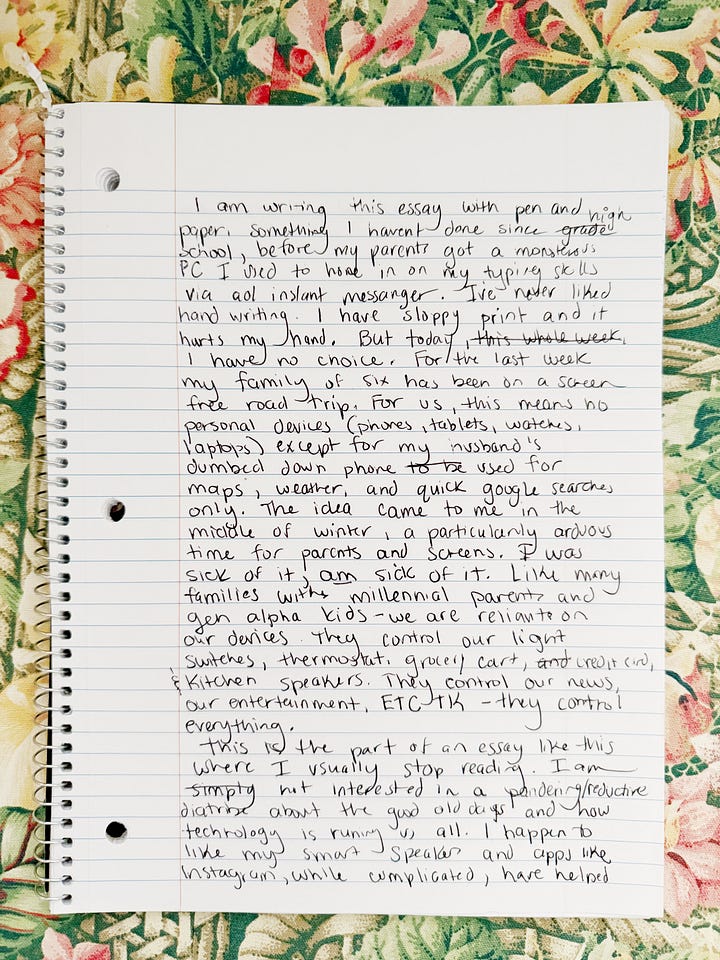 I am writing this essay with pen and
paper, something I havent done since grade high
school, before my parents got a monsterous
PC I used to hone in on my typing skills
via aol instant messanger. I've never liked
hand writing. I have sloppy print and it
hurts my hand. But today, this whole week,
I have no choice. For the last week
my family of six has been on a screen
free road trip. For us, this means no
personal devices (phones, tablets, watches,
laptops) except for my husband's
dumbed down phone to be used for
maps, weather, and quick google searches
only. The idea came to me in the
middle of winter, a particularly arduous
time for parents and screens. I was
sick of it, am sick of it. Like many
families with millennial parents and
gen alpha kids - we are reliant on
our devices. They control our light
switches, thermostat, grocery cart, and credit card,
& kitchen speakers. They control our news,
our entertainment, ETC TK - they control
everything.
This is the part of an essay like this
where I usually stop reading. I am
simply not interested in a pandering/reductive
diatribe about the good old days and how
technology is runing us all. I happen to
like my smart speaker and apps like
Instagram, while complicated, have helped